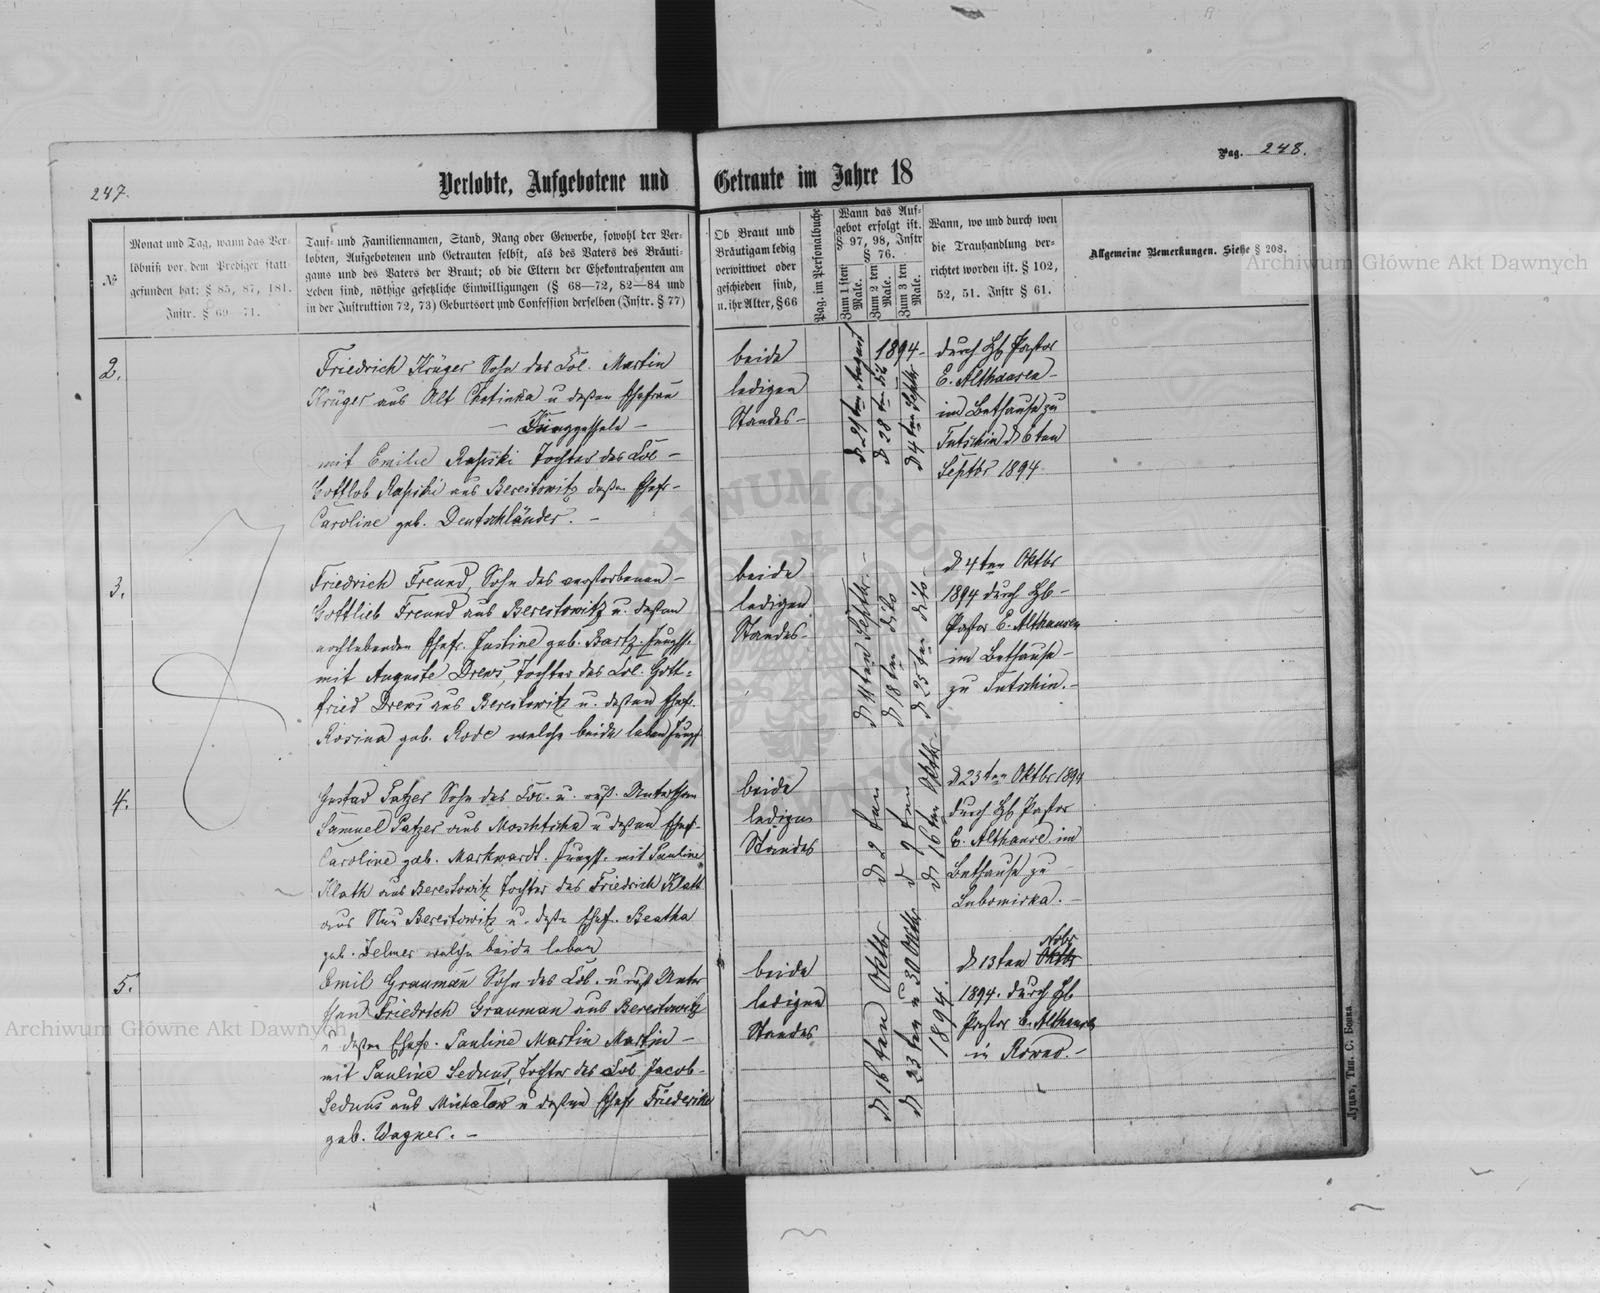 247.
Verlobte, Aufgebotene und Getraute im Jahre 18
Pag. 248.
№
Monat und Tag, wann das Ver-
löbniß vor dem Prediger statt-
gefunden hat: § 85, 87, 181.
Instr. § 69—71.
Tauf- und Familiennamen, Stand, Rang oder Gewerbe, sowohl der Ver-
lobten, Aufgebotenen und Getrauten selbst, als des Vaters des Bräuti-
gams und des Vaters der Braut; ob die Eltern der Ehekontrahenten am
Leben sind, nöthige gesetzliche Einwilligungen (§ 68—72, 82—84 und
in der Instruktion 72, 73) Geburtsort und Confession derselben (Instr. § 77)
Ob Braut und
Bräutigam ledig
verwittwet oder
geschieden sind,
u. ihr Alter, § 66
Pag. im Personalbuche
Wann das Auf-
gebot erfolgt ist.
§ 97, 98, Instr
§ 76.
Zum 1 sten Male.
Zum 2 ten Male.
Zum 3 ten Male.
Wann, wo und durch wen
die Trauhandlung ver-
richtet worden ist. § 102,
52, 51. Instr § 61.
Allgemeine Bemerkungen. Siehe § 208.
2.
Friedrich Krüger Sohn des Col. Martin
Krüger aus Alt Chotinka u deßen Ehefrau
— Junggeselle —
mit Emilie Rapski Tochter des Col —
Gottlob Rapski aus Berestowitz deßen Ehefr-
Caroline geb. Deutschländer. —
beide
ledigen
Standes-
d 21ten August
d 28ten dito
d 4ten Septbr
1894-
durch H Pastor
E. Althausen-
im Bethause zu
Tutschin d 6ten
Septbr 1894
3.
Friedrich Freund, Sohn des verstorbenen-
Gottlieb Freund aus Berestowitz u. deßen
nochlebenden Ehefr. Justine geb. Bartz. Junggs.
mit Auguste Drews, Tochter des Col. Gott-
fried Drews aus Berestowitz u. deßen Ehefr.
Rosina geb. Rode welche beide leben Jungf
beide
ledigen
Standes-
d 11ten Septbr. -
d 18ten dito
d 25ten dito-
d 4ten Oktbr
1894 durch H-
Pastor E. Althausen
im Bethause-
zu Tutschin.-
4.
Gustav Patzer Sohn des Col. u. ruß. Unterthan
Samuel Patzer aus Moschtscha u deßen Ehefr-
Caroline geb. Markwardt. Junggs. mit Pauline
Klath aus Berestowitz Tochter des Friedrich Klath
aus Neu Berestowitz u. deße Ehefr. Beatha
geb. Zelmer welche beide leben
beide
ledigen
Standes
d 2 ten
d 9 ten
d 16ten Oktbr-
d 23ten Oktbr 1894
durch H Pastor
E. Althause im
Bethause zu
Lubomirka.-
5.
Emil Grauman Sohn des Col. u ruß Unter
than Friedrich Grauman aus Berestowitz
u deßen Ehefr. Pauline Martin Martin —
mit Pauline Tochter des Col Jacob-
aus u deßen Ehefr Friederike
geb. Wagner. —
beide
ledigen
Standes
d 16ten Oktbr
d 23ten u 30 Oktbr
1894.
Nobr
d 13ten Oktbr
1894. durch H
Pastor E. Althausen
in Rowno.-
Луцкъ, Тип. С. Бонка
Archiwum Główne Akt Dawnych
Archiwum Główne Akt Dawnych